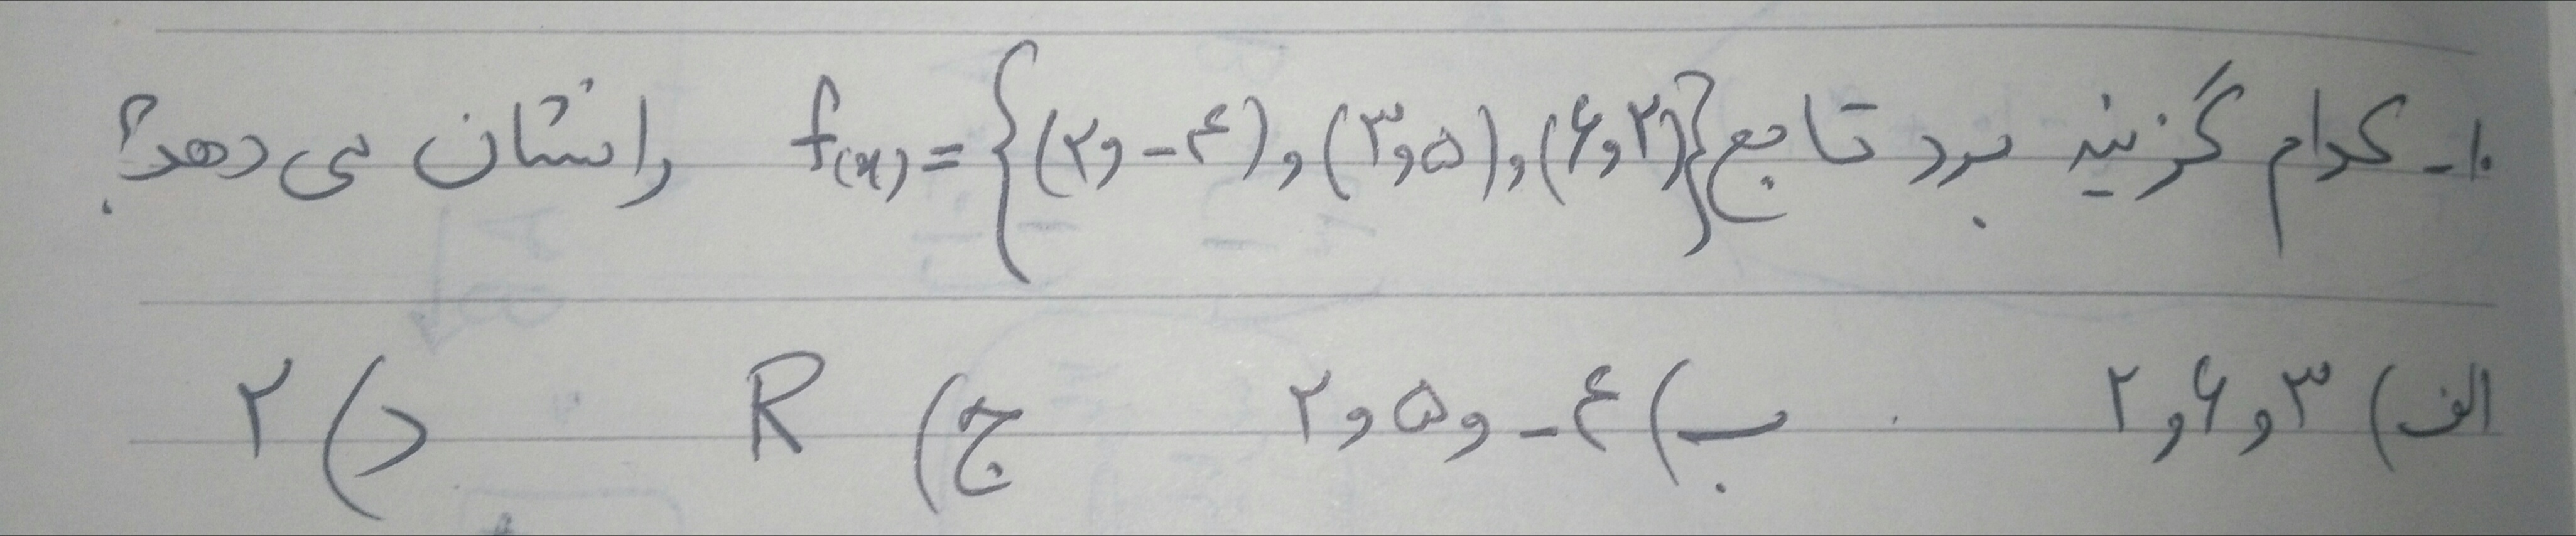 ۱۰- کدام گزینه برد تابع f(x) = {(۲و-۴)و(۳و۵)و(۶و۲)} را نشان می دهد؟
الف) ۳و۶و۲ ب) ۴-و۵و۲ ج) R د) ۲